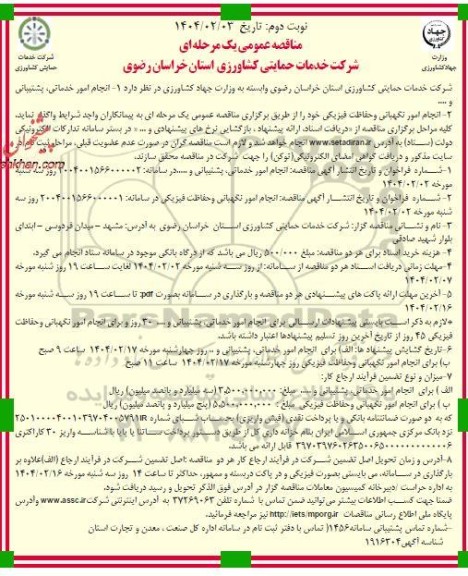 نوبت دوم: تاریخ ۱۴۰۴/۰۲/۰۳
مناقصه عمومی یک مرحله ای
شرکت خدمات حمایتی کشاورزی استان خراسان رضوی
جهاد کشاورزی
وزارت
جهادکشاورزی
شرکت خدمات
حمایتی کشاورزی
شرکت خدمات حمایتی کشاورزی استان خراسان رضوی وابسته به وزارت جهاد کشاورزی در نظر دارد ۱- انجام امور خدماتی، پشتیبانی
و ....
۲- انجام امور نگهبانی وحفاظت فیزیکی خود را از طریق برگزاری مناقصه عمومی یک مرحله ای به پیمانکاران واجد شرایط واگذار نماید.
کلیه مراحل برگزاری مناقصه از «دریافت اسناد، ارائه پیشنهاد، بازگشایی نرخ های پیشنهادی و ...» در بستر سامانه تدارکات الکترونیکی
دولت (ستاد) به آدرس: www.setadiran.ir انجام خواهد شد و لازم است مناقصه گران در صورت عدم عضویت قبلی، مراحل ثبت نام در
سایت مذکور و دریافت گواهی امضای الکترونیکی (توکن) را جهت شرکت در مناقصه محقق سازند.
۱-شماره فراخوان و تاریخ انتشار آگهی مناقصه: انجام امور خدماتی، پشتیبانی و ....در سامانه: ۲۰۰۴۰۰۱۵۶۶۰۰۰۰۰۲ روز سه شنبه
مورخه ۱۴۰۴/۰۲/۰۲
۲-شماره فراخوان و تاریخ انتشار آگهی مناقصه: انجام امور نگهبانی وحفاظت فیزیکی در سامانه: ۲۰۰۴۰۰۱۵۶۶۰۰۰۰۰۱ روز سه
شنبه مورخه ۱۴۰۴/۰۲/۰۲
۳- نام و نشانی مناقصه گزار: شرکت خدمات حمایتی کشاورزی استان خراسان رضوی به آدرس: مشهد – میدان فردوسی – ابتدای
بلوار شهید صادقی
۴- هزینه خرید اسناد برای هر دو مناقصه: مبلغ ۵۰۰/۰۰۰ ریال می باشد که از درگاه بانکی موجود در سامانه ستاد انجام می گیرد.
۴-مهلت زمانی دریافت اسناد هر دو مناقصه از سامانه: از روز سه شنبه مورخه ۱۴۰۴/۰۲/۰۲ لغایت ساعت ۱۹ روز شنبه مورخه
۱۴۰۴/۰۲/۰۷
۵- آخرین مهلت ارائه پاکت های پیشنهادی هر دو مناقصه و بارگذاری در سامانه بصورت pdf: تا ساعت ۱۹ روز سه شنبه مورخه
۱۴۰۴/۰۲/۱۶
*لازم به ذکر است بایستی پیشنهادات ارسالی برای انجام امور خدماتی، پشتیبانی و... ۳۰ روز و برای انجام امور نگهبانی وحفاظت
فیزیکی ۴۵ روز از تاریخ آخرین روز تسلیم پیشنهادها اعتبار داشته باشد.
۶-تاریخ گشایش پیشنهاد ها: الف) برای انجام امور خدماتی، پشتیبانی و ....روز چهارشنبه مورخه ۱۴۰۴/۰۲/۱۷ ساعت ۹ صبح
ب) برای انجام امور نگهبانی وحفاظت فیزیکی روز چهارشنبه مورخه ۱۴۰۴/۰۲/۱۷ ساعت ۱۱ صبح
۷-میزان و نوع تضمین فرآیند ارجاع کار:
الف) برای انجام امور خدماتی، پشتیبانی و.... مبلغ: ۳.۵۰۰.۰۰۰.۰۰۰ (سه میلیارد و پانصد میلیون) ریال.
ب) برای انجام امور نگهبانی وحفاظت فیزیکی مبلغ: ۵.۵۰۰.۰۰۰.۰۰۰ (پنج میلیارد و پانصد میلیون) ریال.
که به دو صورت ضمانتنامه بانکی و یا پرداخت نقدی (فیش واریزی) به
نزد بانک مرکزی جمهوری اسلامی ایران بنام خزانه داری کل از طریق
قابل ارائه می باشد.
۸-آدرس و زمان تحویل اصل تضمین شرکت در فرآیند ارجاع کار هر دو مناقصه :اصل تضمین شرکت در فرآیند ارجاع (الف)علاوه بر
بارگذاری در سامانه، می بایستی بصورت فیزیکی و در پاکت دربسته و ممهور، حداکثر تا ساعت ۱۴ روز سه شنبه مورخه ۱۴۰۴/۰۲/۱۶
به اداره حراست /دبیرخانه کمیسیون معاملات مناقصه گزار در آدرس فوق الذکر تحویل و رسید دریافت شود.
ضمنا جهت کسب اطلاعات بیشتر می توانید ضمن تماس با شماره تلفن ۳۷۲۶۹۰۶۳ به آدرس اینترنتی شرکت www.assc.ir وآدرس
پایگاه ملی اطلاع رسانی مناقصات http://iets/mporg.ir نیز مراجعه فرمائید.
-شماره تماس پشتیبانی سامانه۱۴۵۶( تماس با دفتر ثبت نام در سامانه اداره کل صنعت ، معدن و تجارت استان
شناسه آگهی۱۹۱۶۳۰۴